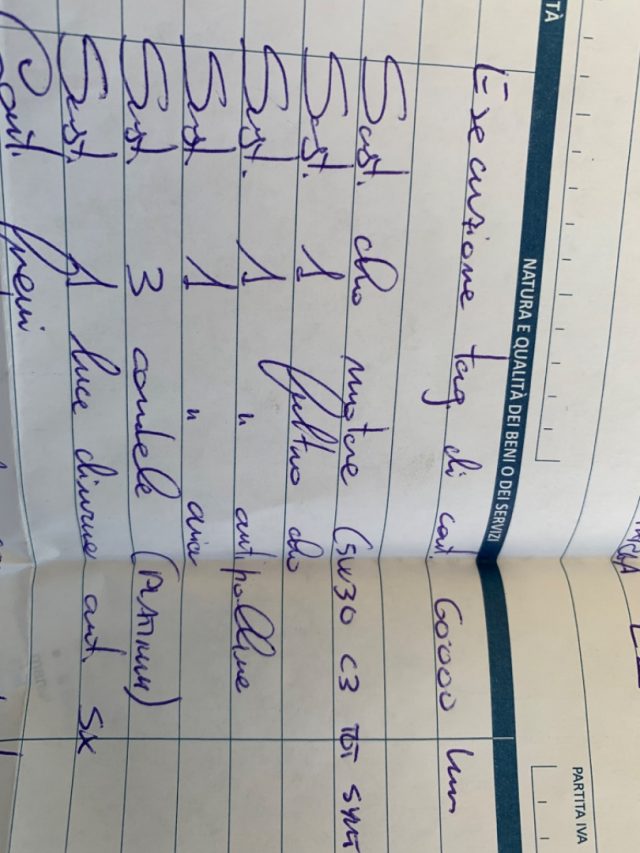 TÀ
NATURA E QUALITÀ DEI BENI O DEI SERVIZI
PARTITA IVA
Esecuzione tag. di cont. 60'000 km
Sost. olio motore (5W30 C3 TOT SYNT
Sost. 1 filtro olio
Sost. 1 " antipolline
Sost 1 " aria
Sost 3 candele (PLATINUM)
Sost. 1 luce diurne ant. SX
Cont. freni